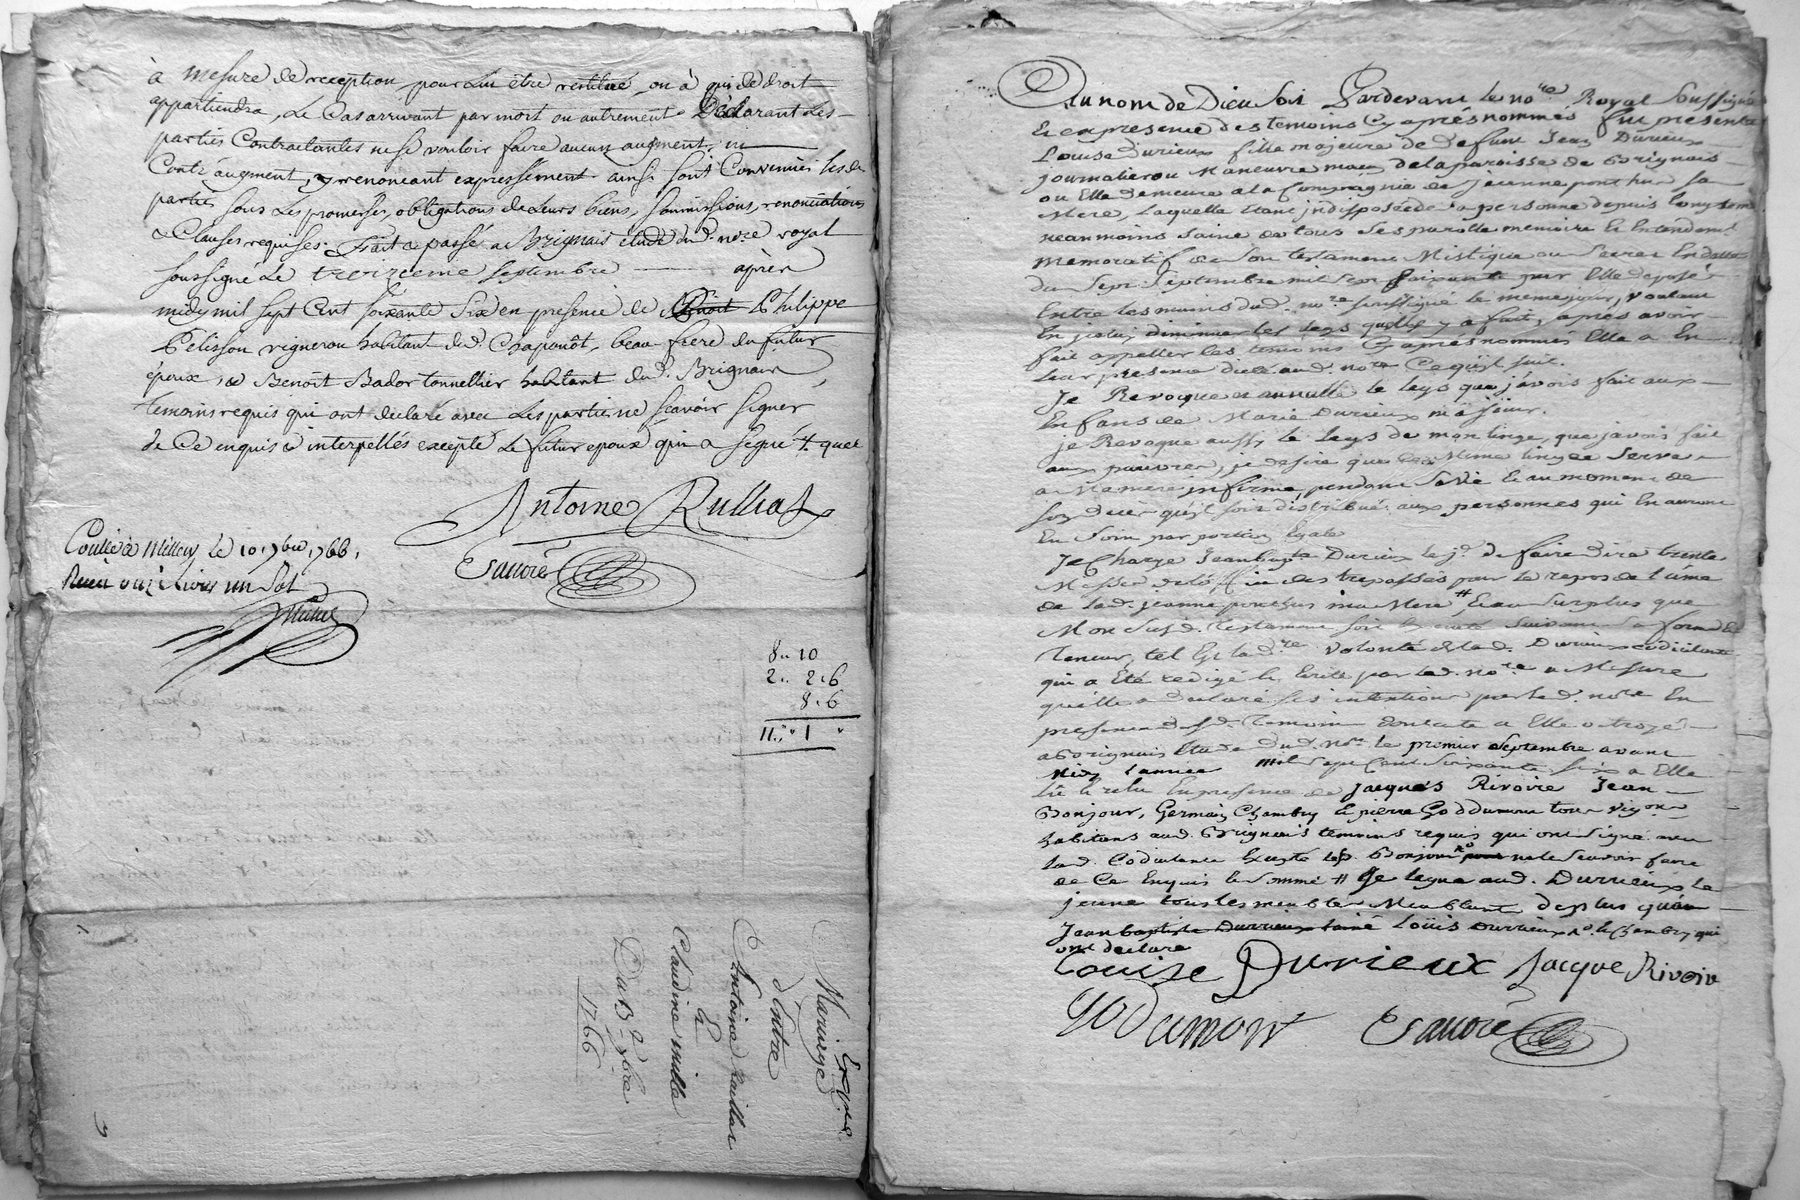 à mesure de reception pour lui être restitué ou à qui de droit
appartiendra, le Cas arrivant par mort ou autrement. Déclarant les
parties Contractantes ne se vouloir faire aucun augment, ni
Contr'augment, y renonçant expressément ainsi sont Convenües lesd
parties sous les promesses, obligations de leurs biens, soumissions, renonciations
& Clauses requises. Fait & passé a Brignais étude dud. nore royal
soussigné Le treizieme septembre après
midy mil sept Cent soixante six en presence de Benoit Philippe
Pelisson vigneron habitant dud. Chaponôt, beau frere du futur
époux, & Benoît Bador tonnellier habitant dud. Brignais
temoins requis qui ont declaré avec les parties ne sçavoir signer
de Ce enquis & interpellés excepté Le futur epoux qui a signé
Antoine Rulliat
Coullé à Millery le 10 7bre 1766,
Reçu onze Livres un Sol
8 10
2 2 6
8 6
11 1
Expée
Mariage
d'Entre
Antoine Raillat
&
Claudine mille
Du 13e 7bre
1766
Au nom de Dieu soit Pardevant le nore Royal soussigné
& en presence des temoins Cy apres nommés fut presente
Louise Durieux fille majeure de defunt Jean Durieux
journalier ou Maneuvre de la paroisse de Brignais
ou Elle demeure a la Compagnie de jeanne ponthus sa
Mere, Laquelle Etant indisposée de sa personne depuis Longtems
neanmoins saine de tous ses parolle memoire & Entendement
memoratif de son testament Mistique ou secret En datte
du sept septembre mil sept soixante par Elle deposé
Entre les mains dud. nore soussigné le meme jour, voulant
En jcelui diminuer les legs quelle y a fait, apres avoir
fait appeller les temoins Cy apres nommés Elle a En
leur presence dicté aud nore Ce qui suit.
Je Revoque & annulle le legs que j'avois fait aux
Enfans de Marie Durieux ma sœur.
je Revoque aussy le legs de mon linge, que j'avois fait
aux pauvres, je desire que led Meme linge serve
a Ma mere infirme, pendant sa vie & au moment de
son decés qu'il soit distribué aux personnes qui En auront
Eu soin par portion Egale
Je Charge Jean bapte Durieux le j. de faire dire trente
Messes des trepassés pour le repos de l'âme
de lad. jeanne ponthus ma Mere # & au surplus que
Mon susd. Testament soit Executé suivant sa forme &
Teneur, tel Est la dre volonté de lad. Durieux codicilante
qui a Eté redigé & Ecrite par led. nore a Mesure
qu'elle a declaré ses intentions par led. nore En
presence desd. Temoins dont acte a Elle octroyé
a Brignais Etude dud. nore le premier septembre avant
Midy l'année mil sept Cent soixante six a Elle
lû & relu En presence de jacques Rivoire Jean
Bonjour, Germain Chambry & pierre Goddumont tous vigons
habitans aud. Brignais temoins requis qui ont signé avec
lad. Codicilante Excepté led. Bonjour pour ne le scavoir faire
de Ce Enquis & sommé # Je legue aud. Durrieux le
jeune tous les meubles Meublants de plus qu'au
Jean baptiste Durrieux l'ainé Loüis Durrieux & le Chambry qui
ont declaré
Louise Durieux Jacque Rivoir
Godumont